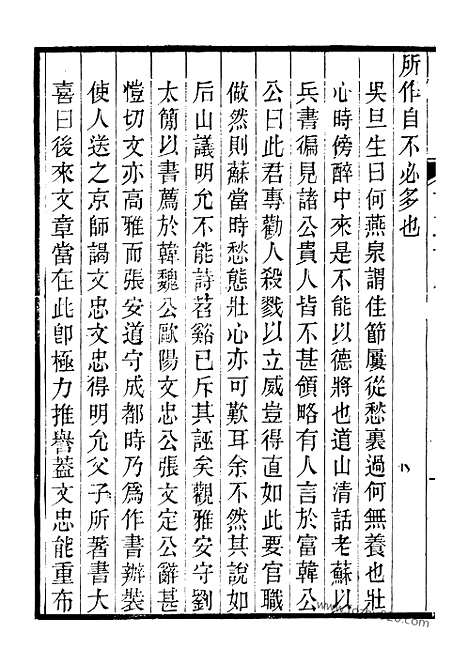 所作自不必多也
吳旦生曰何燕泉謂佳節屢從愁裏過何無養也壯
心時傍醉中來是不能以德將也道山清話老蘇以
兵書徧見諸公貴人皆不甚領略有人言於富韓公
公曰此君專勸人殺戮以立威豈得直如此要官職
做然則蘇當時愁態壯心亦可歎耳余不然其說如
后山議明允不能詩苕谿已斥其誣矣觀雅安守劉
太簡以書薦於韓魏公歐陽文忠公張文定公辭甚
愷切文亦高雅而張安道守成都時乃爲作書辦裝
使人送之京師謁文忠文忠得明允父子所著書大
喜曰後來文章當在此卽極力推譽葢文忠能重布